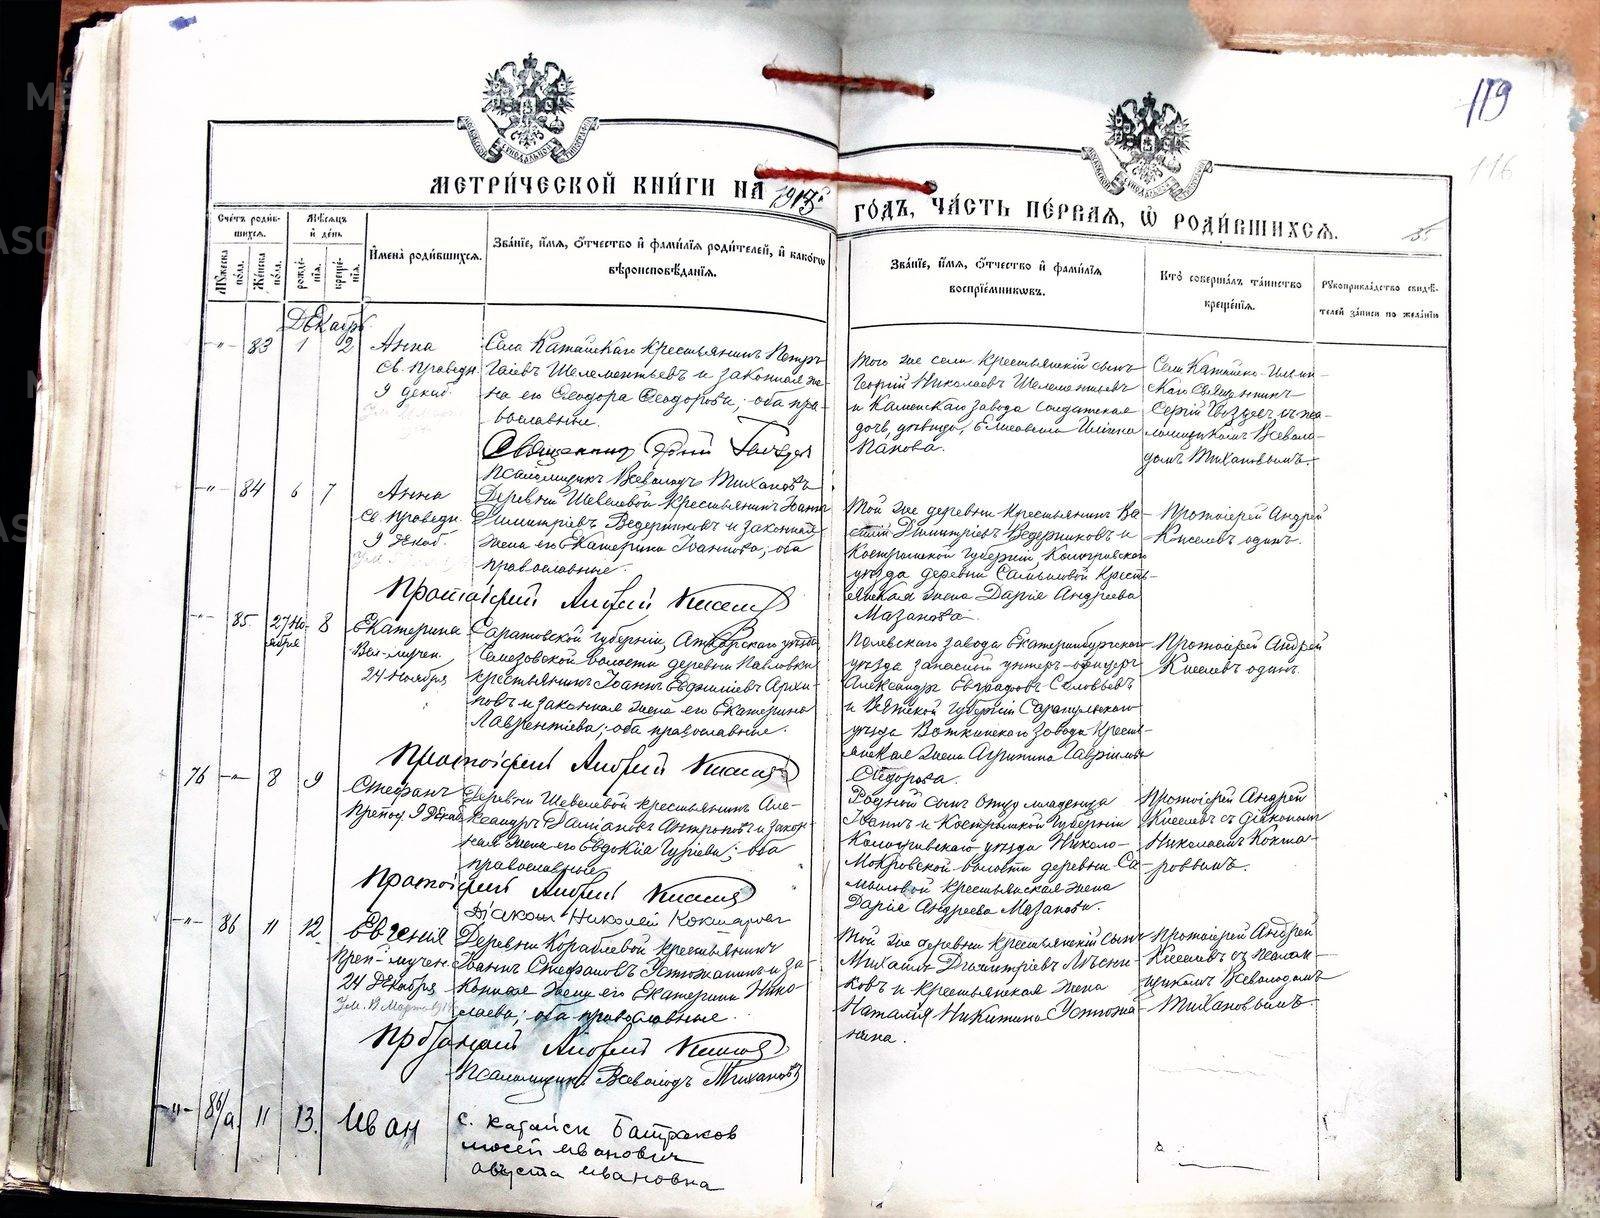 119
116
МОСКОВСКОЙ СѴНОДАЛЬНОЙ ТИПОГРАФІИ
МЕТРИ́ЧЕСКОЙ КНИ́ГИ НА
ГО́ДЪ, ЧА́СТЬ ПЕ́РВАЯ, Ѡ҆ РОДИ́ВШИХСЯ.
Сче́тъ роди́в-
шихся.
Мѣ́сяцъ
и҆ де́нь
Му́жеска по́ла.
Же́нска по́ла.
рожде́-
нїя.
креще́-
нїя.
И҆мена̀ роди́вшихся.
Зва́нїе, и҆́мя, ѻ҆́тчество и҆ фами́лїя роди́телей, и҆ како́гѡ
вѣроисповѣ́данїя.
Зва́нїе, и҆́мя, ѻ҆́тчество и҆ фами́лїя
воспрїе́мникѡвъ.
Кто̀ соверша́лъ та́инство
креще́нїя.
Рꙋкоприкла́дство свидѣ́-
телей за́писи по жела́нїю
Декабрь
-"- 83 1 2
Анна
Св. праведн.
9 декаб.
Села Катайскаго крестьянинъ Петръ
Гаіевъ Шелементьевъ и законная же-
на его Ѳеодора Ѳеодорова; оба пра-
вославные.
Священникъ Сергій
Псаломщикъ Всеволодъ Тихановъ
Того же села крестьянскій сынъ
Георгій Николаевъ Шелементьевъ
и Каменскаго завода солдатская
дочь, девица, Елисавета Ильина
Панова.
Села Катайско-Ильин-
скаго Священникъ
Сергій съ пса-
ломщикомъ Всеволо-
домъ Тихановымъ.
-"- 84 6 7
Анна
Св. праведн.
9 декаб.
Деревни Шевелевой крестьянинъ Іоаннъ
Димитріевъ Ведерниковъ и законная
жена его Екатерина Іоаннова; оба
православные.
Протоіерей Андрей Киселевъ
Той же деревни крестьянинъ Ва-
силій Димитріевъ Ведерниковъ и
Костромской губерніи, Кологривскаго
уѣзда деревни Самыловой крестъ-
янская жена Дарія Андреева
Мазанова.
Протоіерей Андрей
Киселевъ одинъ.
-"- 85 27 Но-
ября 8
Екатерина
Вел-мучен.
24 ноября
Саратовской губерніи, Аткарскаго уѣзда
волости деревни Павловки
крестьянинъ Іоаннъ Евфиміевъ Архи-
повъ и законная жена его Екатерина
Лаврентіева; оба православные.
Протоіерей Андрей Киселевъ
Полевскаго завода Екатеринбургскаго
уѣзда запасной унтеръ-офицеръ
Александръ Евграфовъ Соловьевъ
и Вятской губерніи Сарапульскаго
уѣзда Воткинскаго завода крестъ-
янская жена Агрипина Гавріилова
Сидорова.
Протоіерей Андрей
Киселевъ одинъ.
76 -"- 8 9
Стефанъ
Препод. 9 декаб.
Деревни Шевелевой крестьянинъ Але-
ксандръ Даміановъ Антроповъ и закон-
ная жена его Евдокія Гуріева; оба
православные
Протоіерей Андрей Киселевъ
Діаконъ Николай Кокшаровъ
Родной сынъ отцу младенца
Іоаннъ и Костромской губерніи
Кологривскаго уѣзда Николо-
Мокровской волости деревни Са-
мыловой крестьянская жена
Дарія Андреева Мазанова.
Протоіерей Андрей
Киселевъ съ діакономъ
Николаемъ Кокша-
ровымъ.
-"- 86 11 12
Евгенія
Преп-мучен.
24 декабря
Деревни Кораблевой крестьянинъ
Іоаннъ Стефановъ Устюжанинъ и за-
конная жена его Екатерина Нико-
лаева; оба православные.
Протоіерей Андрей Киселевъ
Псаломщикъ Всеволодъ Тихановъ
Той же деревни крестьянскій сынъ
Михаилъ Димитріевъ Лѣсни-
ковъ и крестьянская жена
Наталія Никитина Устюжа-
нина.
Протоіерей Андрей
Киселевъ съ псалом-
щикомъ Всеволодомъ
Тихановымъ.
-"- 86/а. 11 13.
Иван
с. Катайск Батраков
мосей иванович
августа ивановна